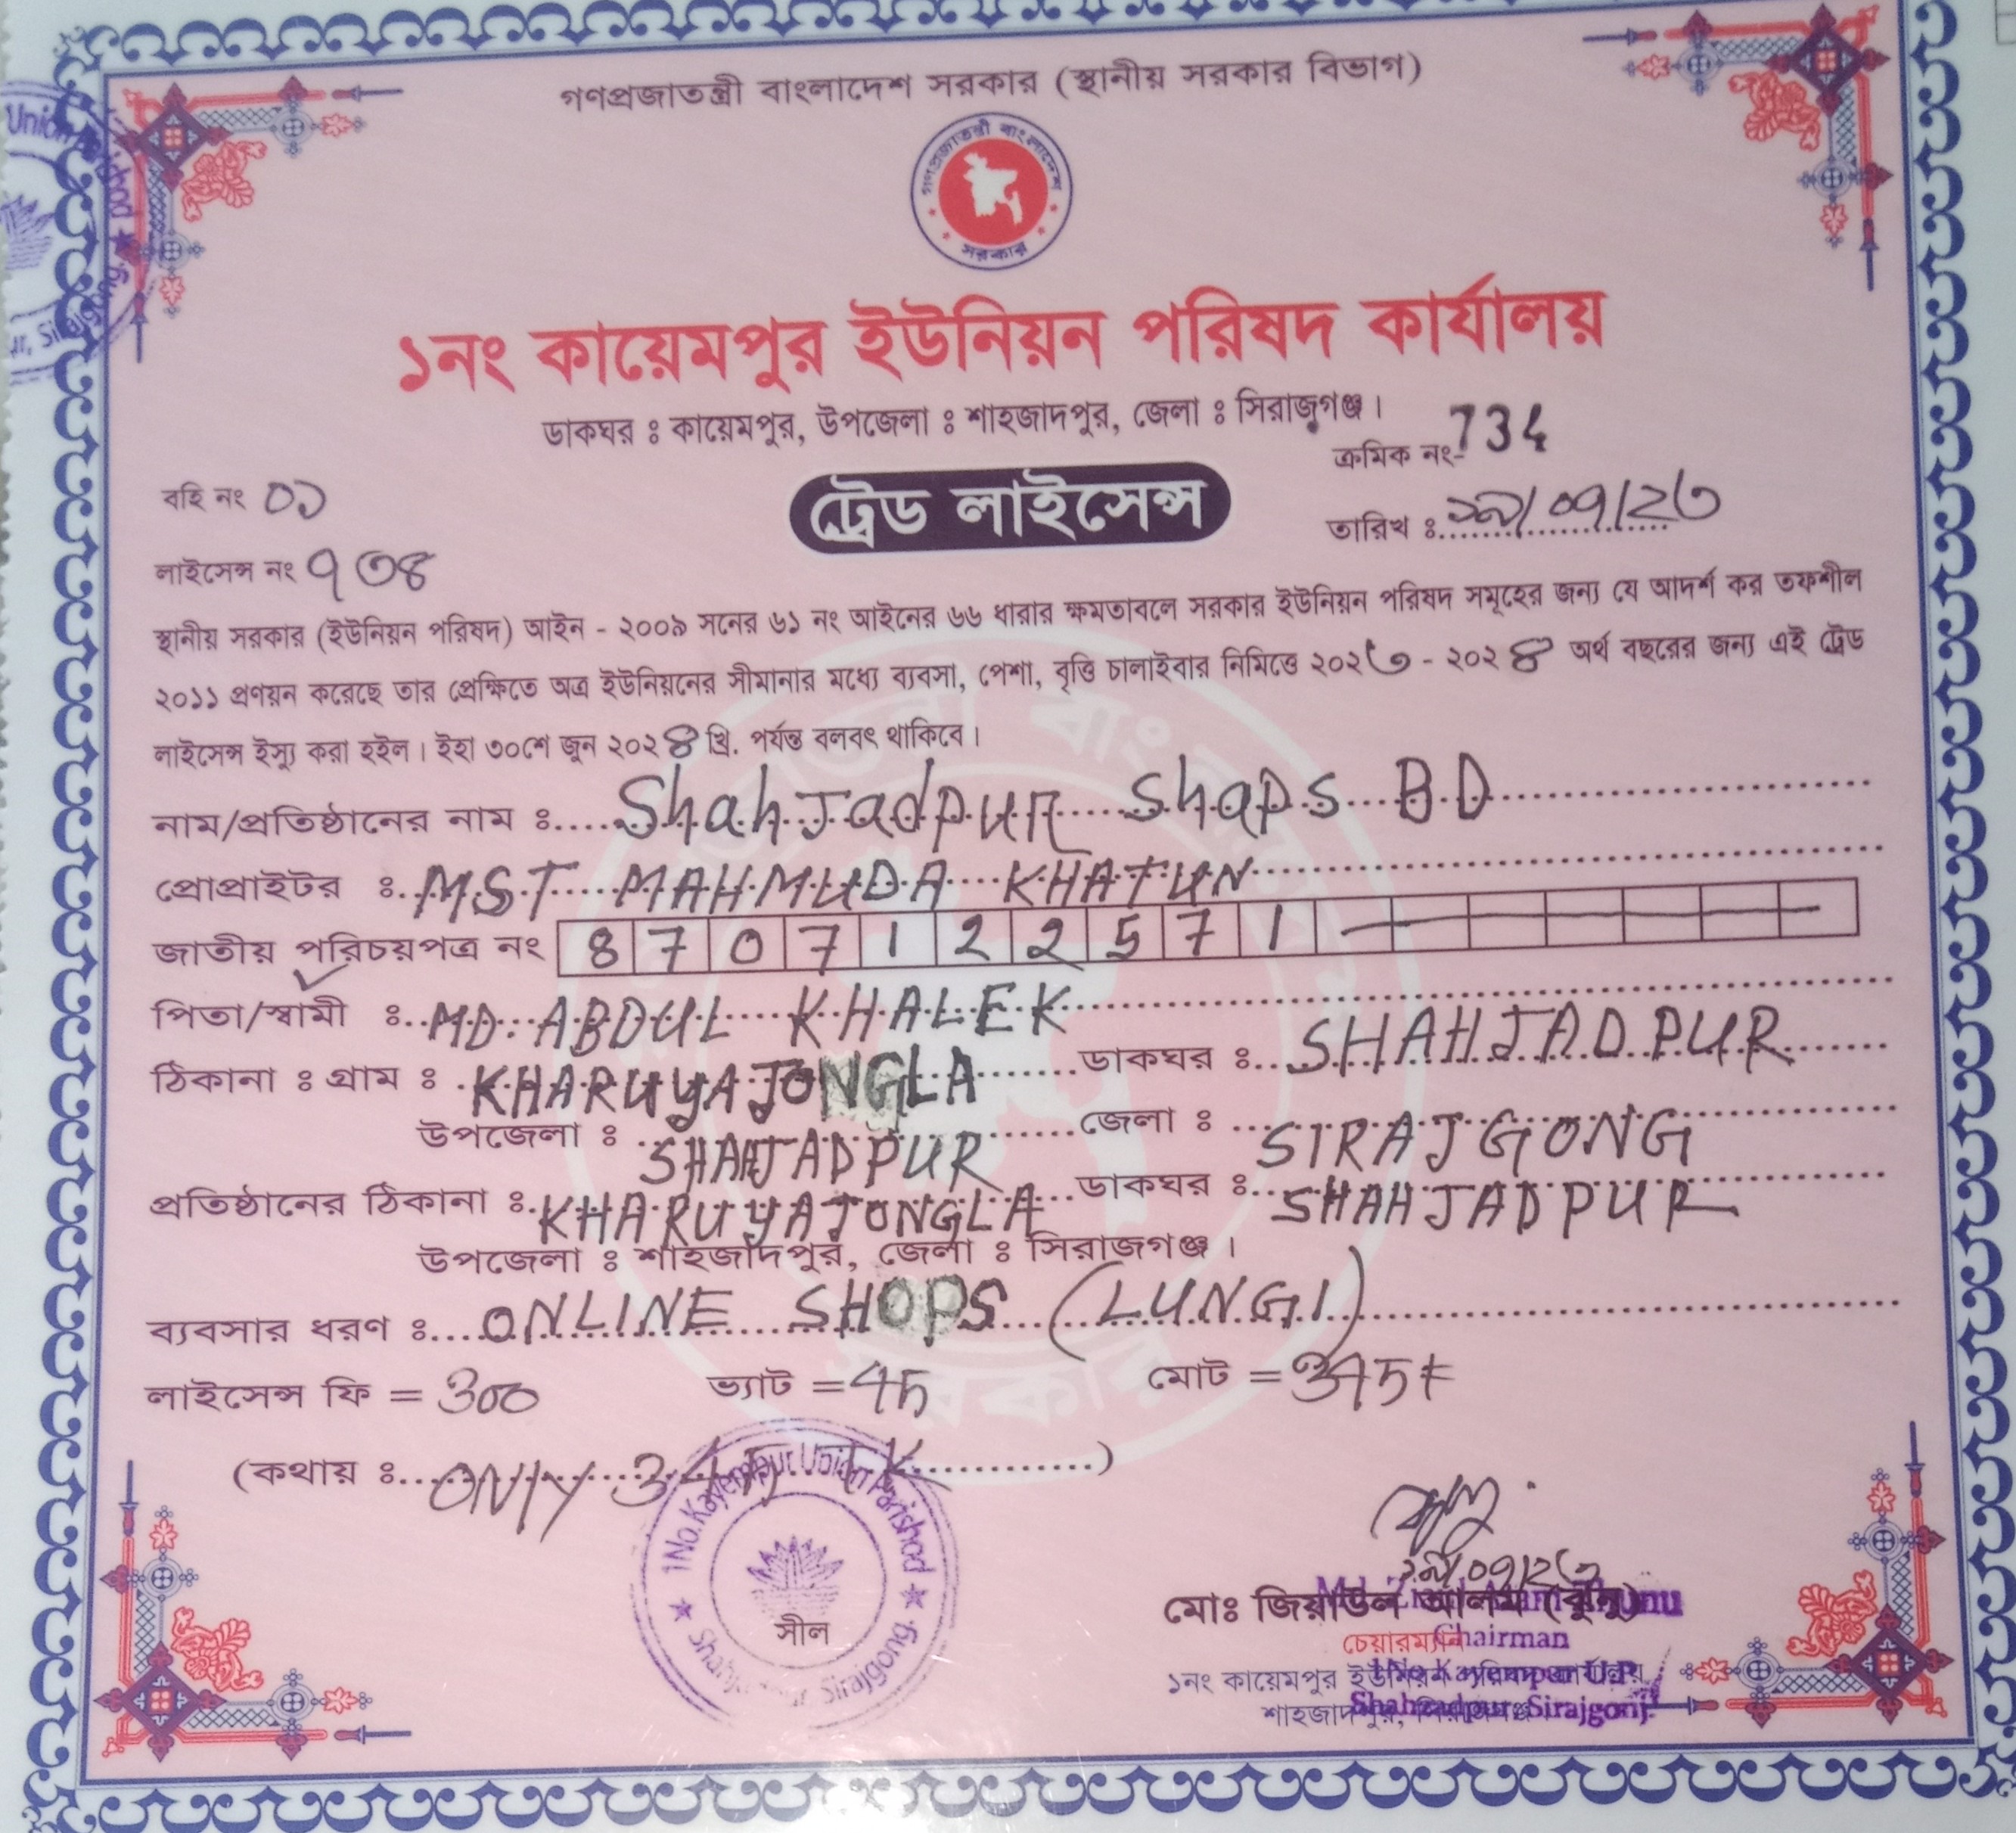 গণপ্রজাতন্ত্রী বাংলাদেশ সরকার (স্থানীয় সরকার বিভাগ)
গণপ্রজাতন্ত্রী বাংলাদেশ
সরকার
১নং কায়েমপুর ইউনিয়ন পরিষদ কার্যালয়
ডাকঘর ঃ কায়েমপুর, উপজেলা ঃ শাহজাদপুর, জেলা ঃ সিরাজগঞ্জ।
ক্রমিক নং- 734
বহি নং ০১
ট্রেড লাইসেন্স
তারিখ ঃ ২৯/০৭/২৩
লাইসেন্স নং ৭৩৪
স্থানীয় সরকার (ইউনিয়ন পরিষদ) আইন - ২০০৯ সনের ৬১ নং আইনের ৬৬ ধারার ক্ষমতাবলে সরকার ইউনিয়ন পরিষদ সমূহের জন্য যে আদর্শ কর তফশীল
২০১১ প্রণয়ন করেছে তার প্রেক্ষিতে অত্র ইউনিয়নের সীমানার মধ্যে ব্যবসা, পেশা, বৃত্তি চালাইবার নিমিত্তে ২০২৩ - ২০২৪ অর্থ বছরের জন্য এই ট্রেড
লাইসেন্স ইস্যু করা হইল। ইহা ৩০শে জুন ২০২৪ খ্রি. পর্যন্ত বলবৎ থাকিবে।
নাম/প্রতিষ্ঠানের নাম ঃ Shahjadpur Shops BD
প্রোপ্রাইটর ঃ MST MAHMUDA KHATUN
জাতীয় পরিচয়পত্র নং 8707122571
পিতা/স্বামী ঃ MD. ABDUL KHALEK
ঠিকানা ঃ গ্রাম ঃ KHARUYAJONGLA ডাকঘর ঃ SHAHJADPUR
উপজেলা ঃ SHAHJADPUR জেলা ঃ SIRAJGONG
প্রতিষ্ঠানের ঠিকানা ঃ KHARUYAJONGLA ডাকঘর ঃ SHAHJADPUR
উপজেলা ঃ শাহজাদপুর, জেলা ঃ সিরাজগঞ্জ।
ব্যবসার ধরণ ঃ ONLINE SHOPS (LUNGI)
লাইসেন্স ফি = 300 ভ্যাট = 45 মোট = 345
(কথায় ঃ ONLY 345 TK)
1No. Kayempur Union Parishod
সীল
Sirajgong.
২৯/০৭/২৩
মোঃ জিয়াউল আলম (ঝুনু)
চেয়ারম্যান Chairman
১নং কায়েমপুর ইউনিয়ন 1No. Kayempur U.P.
শাহজাদপুর, Shahzadpur, Sirajgonj